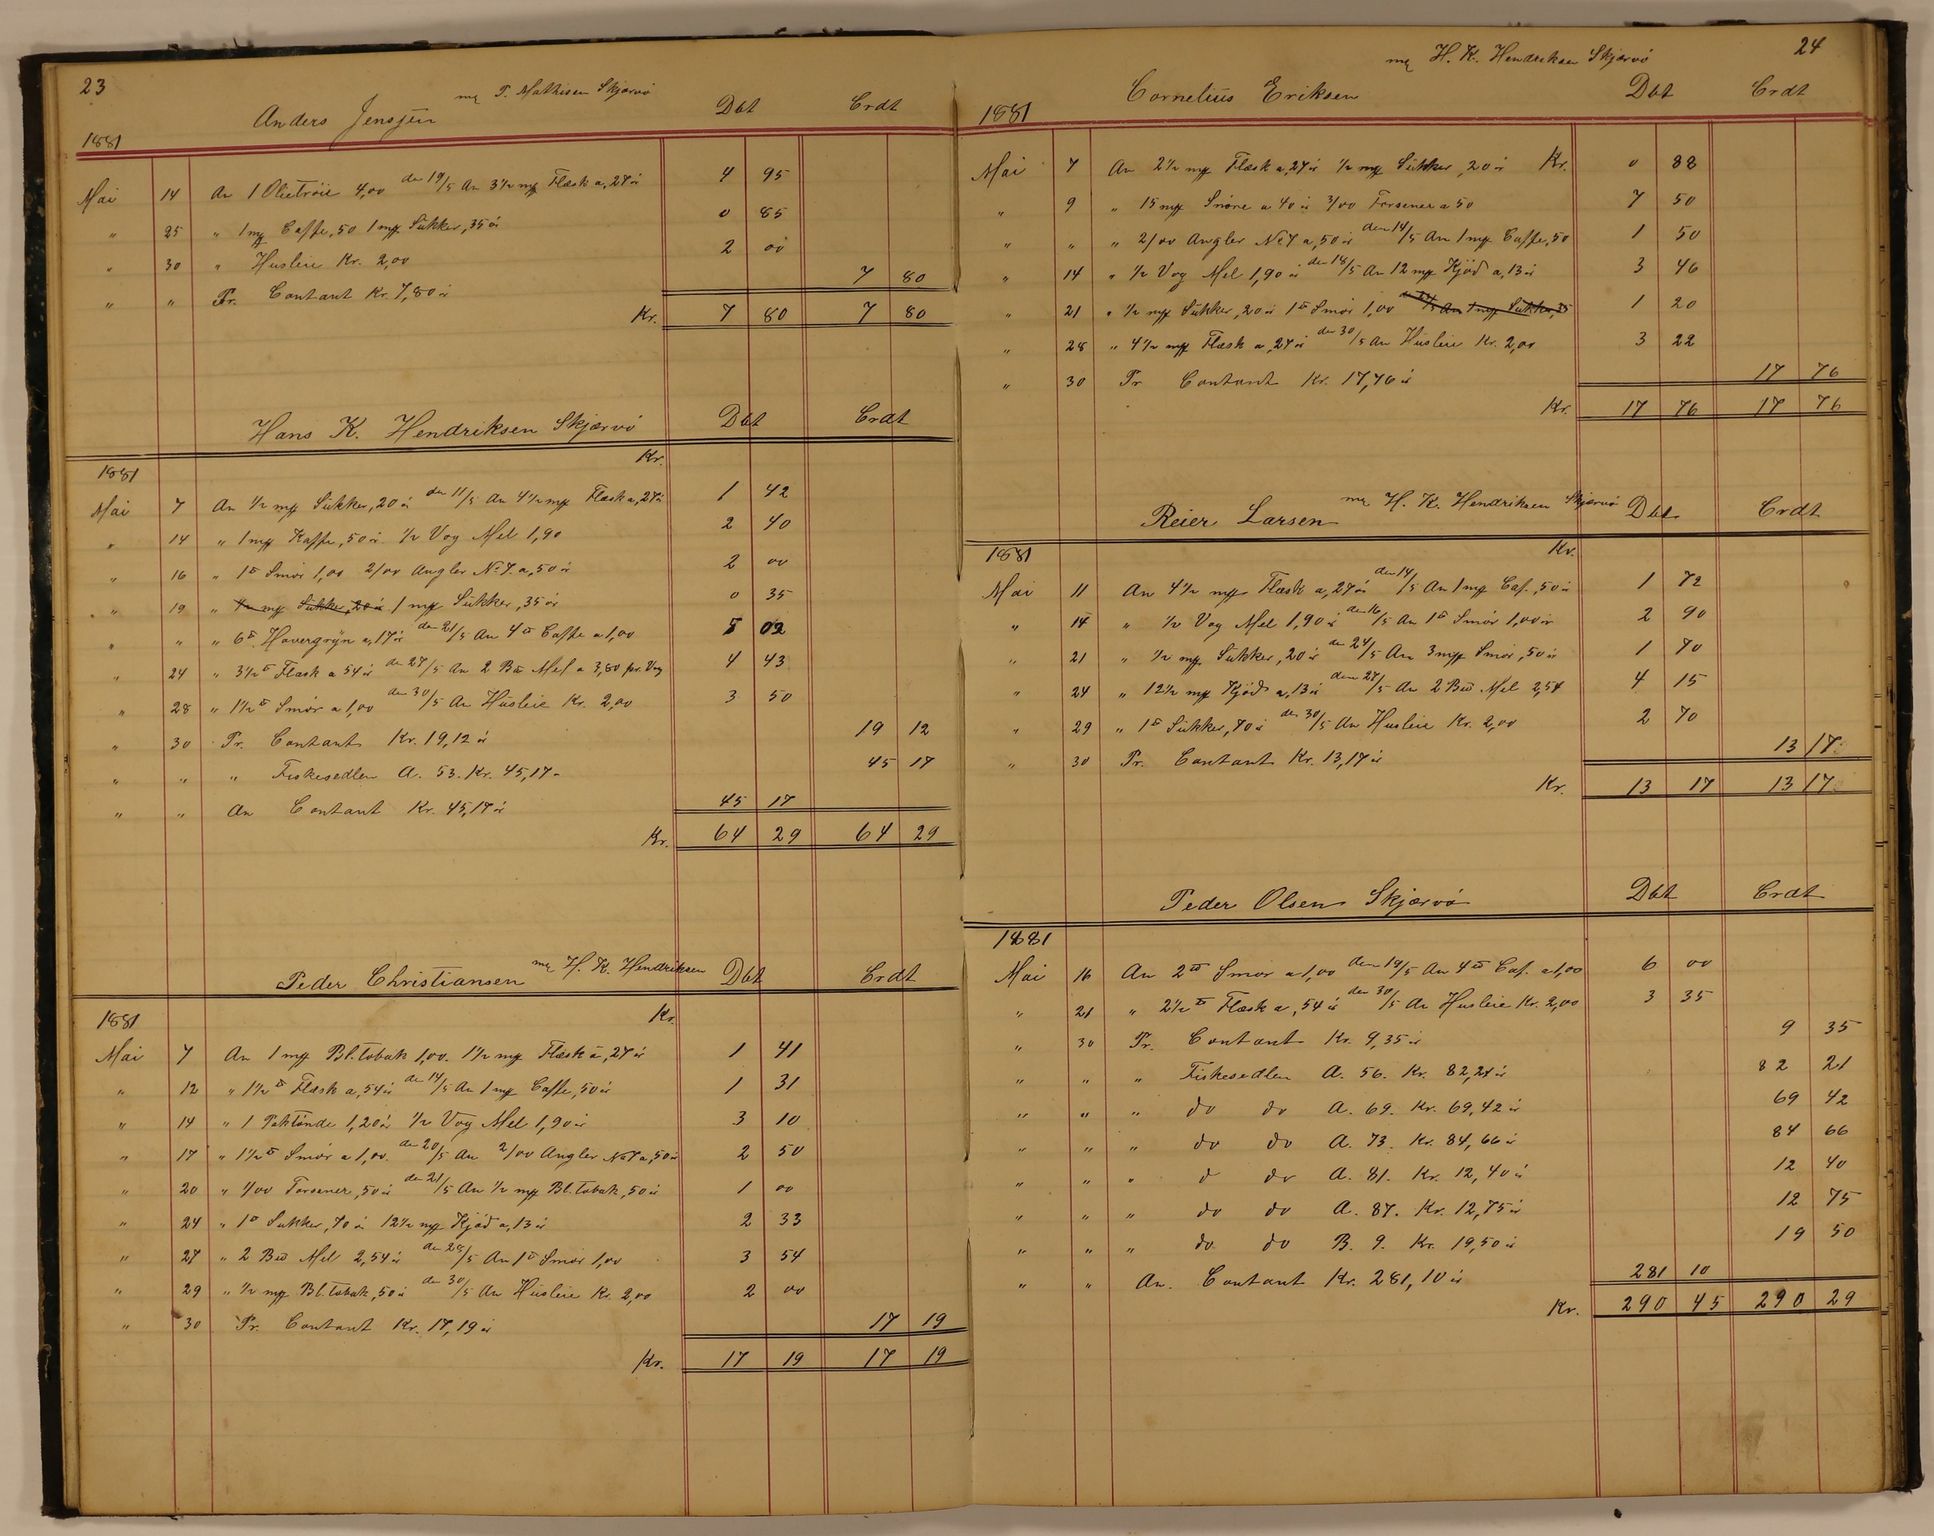 23
Anders Jensen mz P. Mathisen Skjærvö Dbt Crdt
1881
Mai 14 An 1 Olietröie 4,00 den 19/5 An 3 1/2 mz Flæsk a,27 ör 4 95
" 25 " 1 mz Caffe,50 1 mz Sukker,35 ör 0 85
" 30 " Husleie Kr. 2,00 2 00
" " Pr. Contant Kr. 7,80 ör 7 80
Kr. 7 80 7 80
Hans K. Hendriksen Skjærvö Dbt Crdt
1881 Kr.
Mai 7 An 1/2 mz Sukker,20 ör den 11/5 An 4 1/2 mz Flæsk a,27 ör 1 42
" 14 " 1 mz Kaffe,50 ör 1/2 Vog Mel 1,90 2 40
" 16 " 1 ℔ Smör 1,00 2/00 Angler No 7. a,50 ör 2 00
" 19 " 1/2 mz Sukker,20 ör 1 mz Sukker,35 ör 0 35
" " " 6 ℔ Havergryn a,17 ör den 21/5 An 4 ℔ Caffe a 1,00 5 02
" 24 " 3 1/2 ℔ Flæsk a 54 ör den 27/5 An 2 B℔ Mel a 3,80 pr. Vog 4 43
" 28 " 1 1/2 ℔ Smör a 1,00 den 30/5 An Husleie Kr. 2,00 3 50
" 30 Pr. Contant Kr. 19,12 ör 19 12
" " " Fiskesedlen A. 53. Kr. 45,17- 45 17
" " An Contant Kr. 45,17 ör 45 17
Kr. 64 29 64 29
Peder Christiansen mz H. K. Hendriksen Dbt Crdt
1881 Kr.
Mai 7 An 1 mz Bl.tobak 1,00. 1 1/2 mz Flæsk a,27 ör 1 41
" 12 " 1 1/2 ℔ Flæsk a,54 ör den 14/5 An 1 mz Caffe,50 ör 1 31
" 14 " 1 Paktönde 1,20 ör 1/2 Vog Mel 1,90 ör 3 10
" 17 " 1 1/2 ℔ Smör a 1,00. den 20/5 An 2/00 Angler No 7 a,50 ör 2 50
" 20 " 1/00 Forsener,50 ör den 21/5 An 1/2 mz Bl.tobak,50 ör 1 00
" 24 " 1 ℔ Sukker,70 ör 12 1/2 mz Kjöd a,13 ör 2 33
" 27 " 2 B℔ Mel 2,54 ör den 28/5 An 1 ℔ Smör 1,00 3 54
" 29 " 1/2 mz Bl.tobak,50 ör den 30/5 An Husleie Kr. 2,00 2 00
" 30 Pr. Contant Kr. 17,19 ör 17 19
Kr. 17 19 17 19
24
Cornelius Eriksen mz H. K. Hendriksen Skjærvö Dbt Crdt
1881
Mai 7 An 2 1/2 mz Flæsk a,27 ör 1/2 mz Sukker,20 ör Kr. 0 88
" 9 " 15 mz Snöre a 40 ör 3/00 Forsener a 50 7 50
" " " 2/00 Angler No 7 a,50 ör den 14/5 An 1 mz Caffe,50 1 50
" 14 " 1/2 Vog Mel 1,90 ör den 18/5 An 12 mz Kjöd a,13 ör 3 46
" 21 " 1/2 mz Sukker,20 ör 1 ℔ Smör 1,00 den 27/5 An 1 mz Sukker,35 1 20
" 28 " 4 1/2 mz Flæsk a,27 ör den 30/5 An Husleie Kr. 2,00 3 22
" 30 Pr Contant Kr. 17,76 ör 17 76
Kr. 17 76 17 76
Reier Larsen mz H. K. Hendriksen Skjærvö Dbt Crdt
1881 Kr.
Mai 11 An 4 1/2 mz Flæsk a,27 ör den 14/5 An 1 mz Caf.,50 ör 1 72
" 14 " 1/2 Vog Mel 1,90 ör den 16/5 An 1 ℔ Smör 1,00 ör 2 90
" 21 " 1/2 mz Sukker,20 ör den 24/5 An 3 mz Smör,50 ör 1 70
" 24 " 12 1/2 mz Kjöd a,13 ör den 27/5 An 2 B℔ Mel 2,54 4 15
" 29 " 1 ℔ Sukker,70 ör den 30/5 An Husleie Kr. 2,00 2 70
" 30 Pr. Contant Kr. 13,17 ör 13 17
Kr. 13 17 13 17
Peder Olsen Skjærvö Dbt Crdt
1881
Mai 16 An 2 ℔ Smör a 1,00 den 19/5 An 4 ℔ Caf. a 1,00 6 00
" 21 " 2 1/2 ℔ Flæsk a,54 ör den 30/5 An Husleie Kr. 2,00 3 35
" 30 Pr. Contant Kr. 9,35 ör 9 35
" " " Fiskesedlen A. 56. Kr. 82,21 ör 82 21
" " " do do A. 69. Kr. 69,42 ör 69 42
" " " do do A. 73. Kr. 84,66 ör 84 66
" " " d do A. 81. Kr. 12,40 ör 12 40
" " " do do A. 87. Kr. 12,75 ör 12 75
" " " do do B. 9. Kr. 19,50 ör 19 50
" " An. Contant Kr. 281,10 ör 281 10
Kr. 290 45 290 29